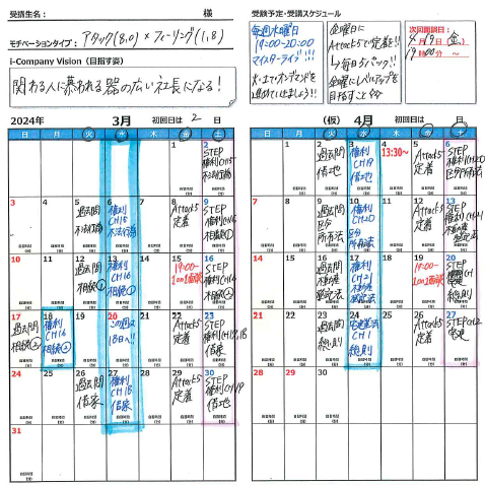 受講生名： 様
モチベーションタイプ： アタック(8,0) × フィーリング(1,8)
i-Company Vision（目指す姿）
関わる人に慕われる器の広い社長になる！
受験予定・受講スケジュール
毎週水曜日
19:00-20:00
マイスターライブ!!!
火・土でオンデマンドを
進めていきましょう!!
金曜日に
Attack5で定着を!!
↳毎日5パック!!
金曜にレベルアップを
目指すこと
次回開講日
4月19日（金）
19時00分～
2024年 3月 初回日は 2 日
日 月 火 水 木 金 土
1 2
STEP
権利CH15
不法行為
3 4 5 6 7 8 9
過去問
不法行為
権利
CH15
不法行為
Attack5
定着
STEP
権利CH16
相続①
10 11 12 13 14 15 16
過去問
相続①
権利
CH16
相続①
19:00~
1on1面談
STEP
権利CH16
相続②
17 18 19 20 21 22 23
過去問
相続②
権利
CH16
相続②
この週は
18日へ!!
Attack5
定着
STEP
権利CH17,18
借家
24 25 26 27 28 29 30
過去問
借家
権利
CH18
借家
Attack5
定着
STEP
権利CH19
借地
31
（仮） 4月 初回日は 日
日 月 火 水 木 金 土
1 2 3 4 5 6
過去問
借地
権利
CH19
借地
13:30~
Attack5
定着
STEP
権利CH20
区分所有法
7 8 9 10 11 12 13
過去問
区分
所有法
権利
CH20
区分
所有法
Attack5
定着
STEP
権利CH21
不動産
登記法
14 15 16 17 18 19 20
過去問
不動産
登記法
権利
CH21
不動産
登記法
19:00~
1on1面談
STEP
CH1
総則
21 22 23 24 25 26 27
過去問
総則
宅建業法
CH1
総則
Attack5
定着
STEP CH2
宅建
28 29 30